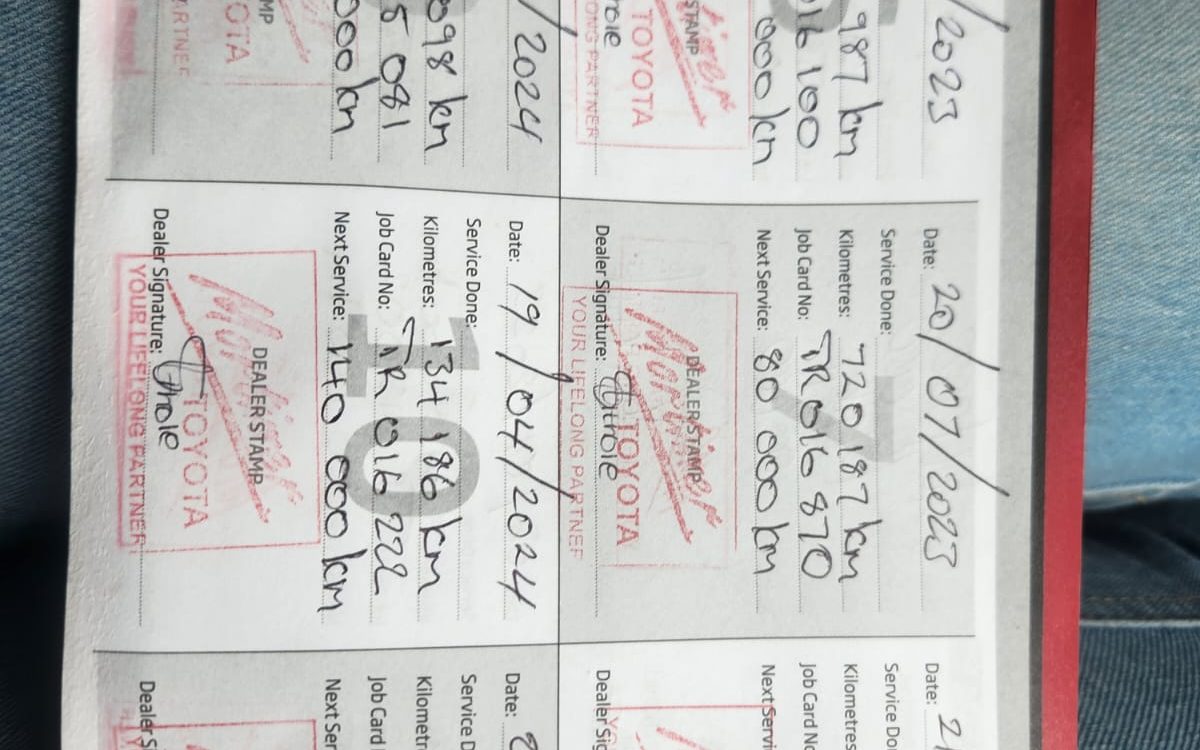 /2023
987 km
016 100
000 km
STAMP
TOYOTA
PARTNER
7
Date: 20/07/2023
Service Done:
Kilometres: 72 187 km
Job Card No: TR 016 870
Next Service: 80 000 km
DEALER STAMP
TOYOTA
Dealer Signature:
YOUR LIFELONG PARTNER
Date: 2
Service Do
Kilometres
Job Card No
Next Servi
Dealer Sig
/2024
098 km
5 081
000 km
AMP
OTA
ARTNER
10
Date: 19/04/2024
Service Done:
Kilometres: 134 186 km
Job Card No: TR 016 222
Next Service: 140 000 km
DEALER STAMP
TOYOTA
Dealer Signature:
YOUR LIFELONG PARTNER
Date:
Service D
Kilometr
Job Card
Next Ser
Dealer S